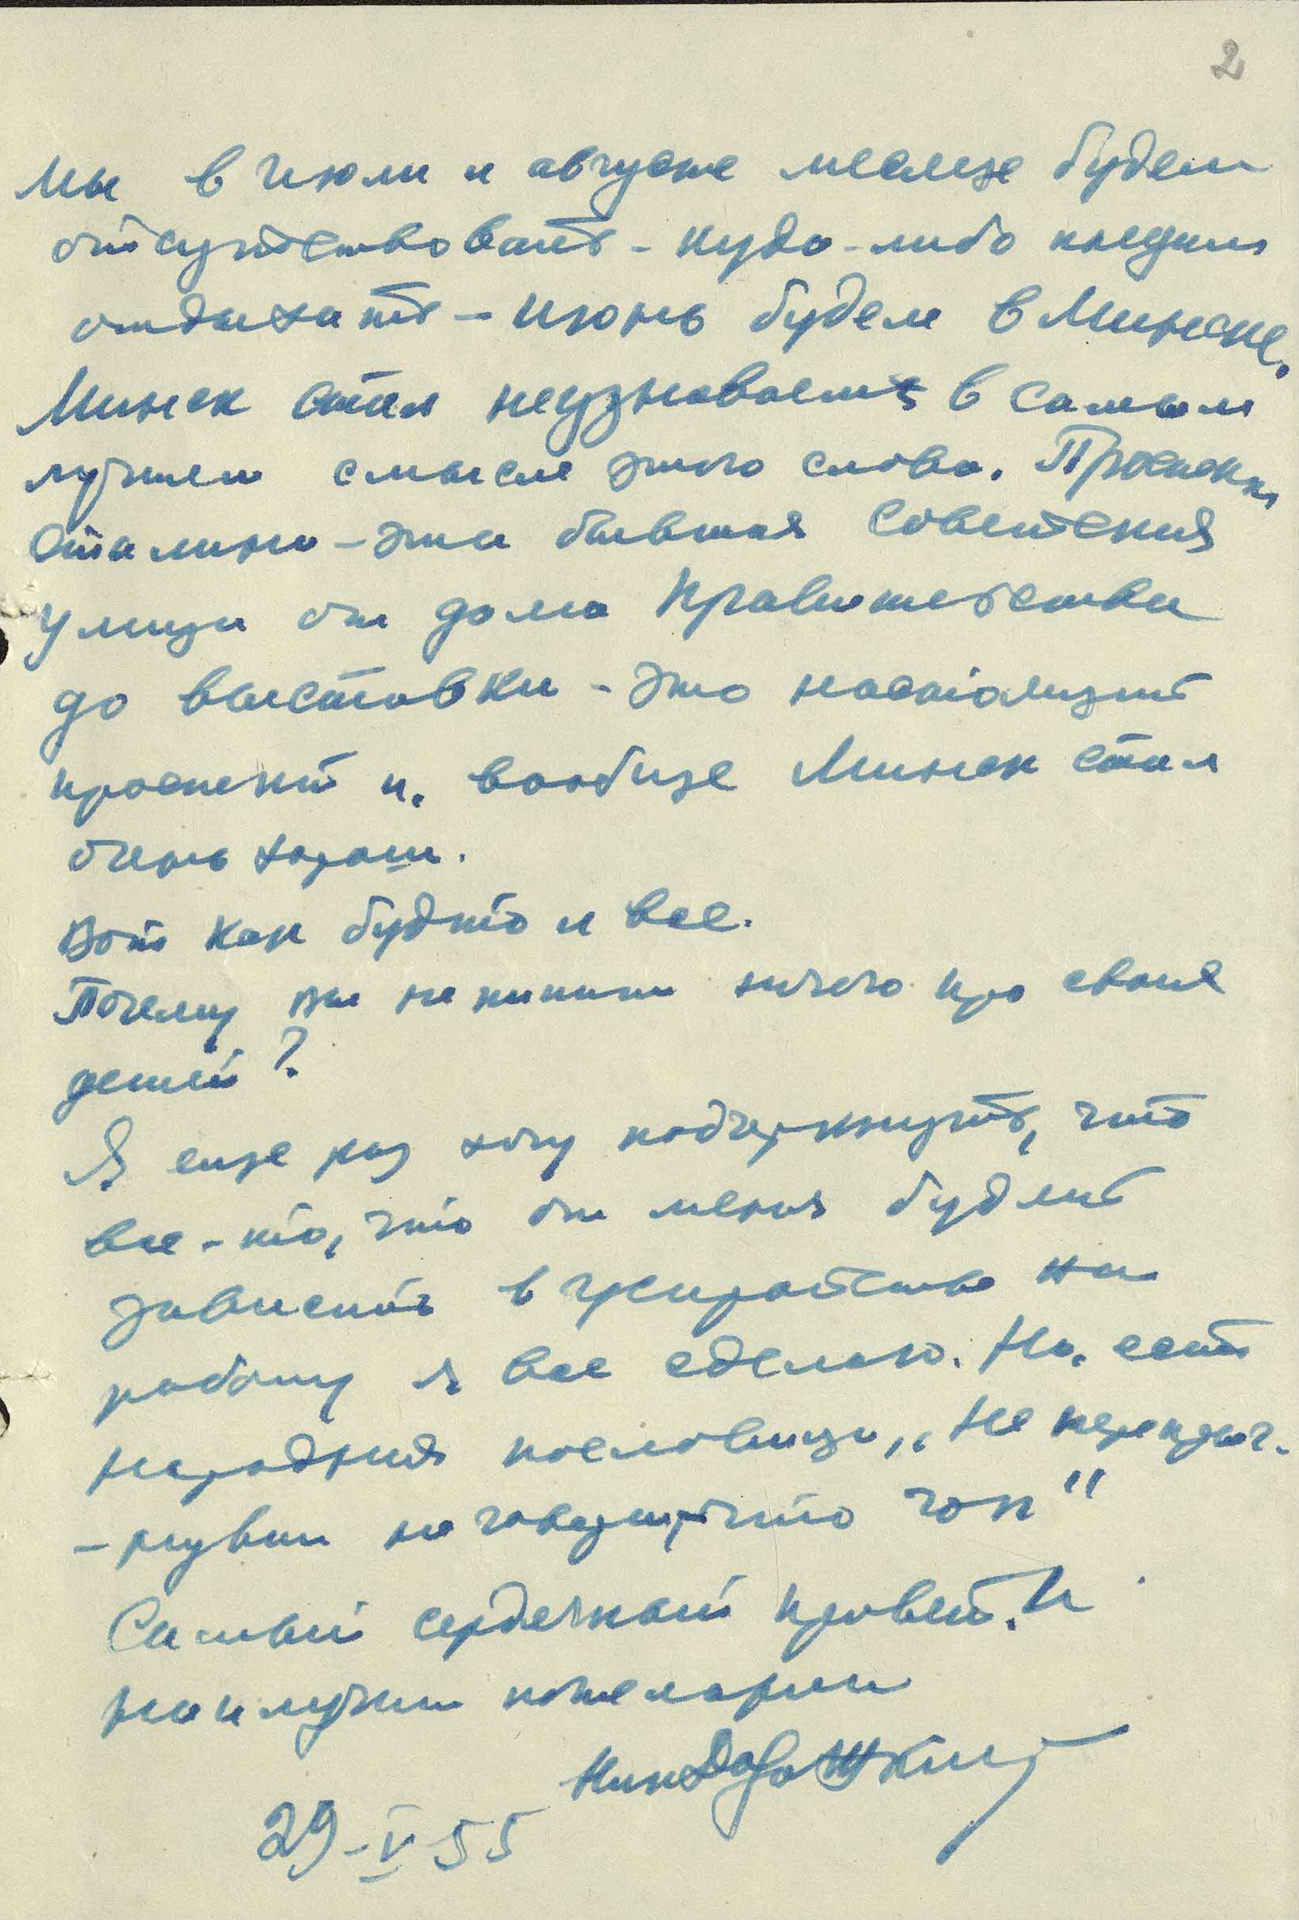 2
Мы в июли и августе месяце будем
отсутствовать - куда-либо поедим
отдыхать - июнь будем в Минске.
Минск стал неузноваемы в самым
лучшем смысле этого слова. Проспект
Сталина - эта бывшая Советская
улица от дома Правительства
до выставки - это настоящий
проспект и, вообще Минск стал
очень хорош.
Вот как будто и все.
Почему вы не пишите ничего про своих
детей?
Я еще раз хочу подчеркнуть, что
все-то, что от меня будет
зависить в устройстве на
работу я все сделаю. Но, есть
народная пословица, „Не перепрыг-
-нувши не говори, что гоп"
Самый сердечный привет. И
наилучши пожелания
Ник Дорошкин
29-V-55